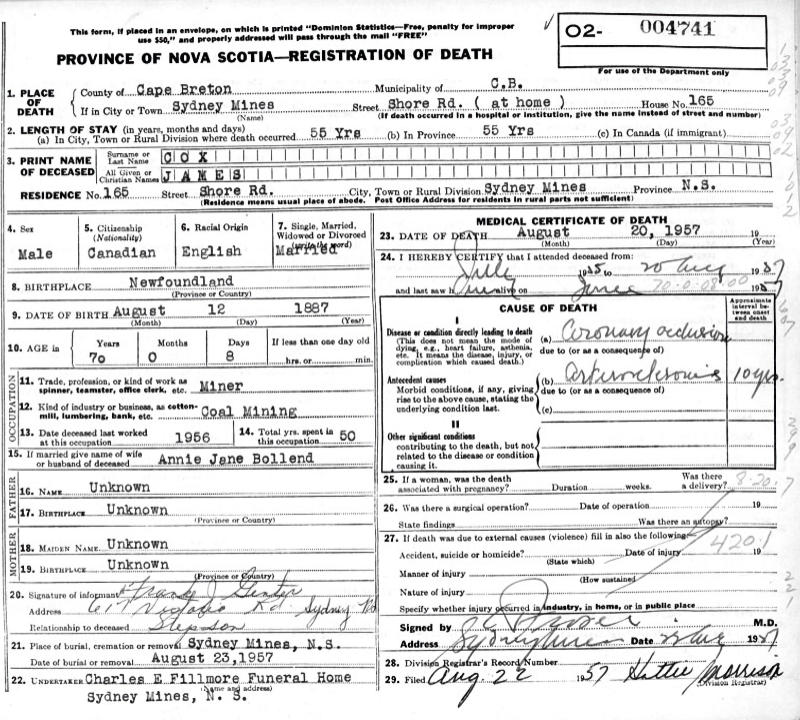 This form, if placed in an envelope, on which is printed "Dominion Statistics—Free, penalty for improper
use $50," and properly addressed will pass through the mail "FREE"
PROVINCE OF NOVA SCOTIA—REGISTRATION OF DEATH
O2- 004741
For use of the Department only
1. PLACE OF DEATH
County of Cape Breton Municipality of C.B.
If in City or Town Sydney Mines Street Shore Rd. ( at home ) House No. 165
(Name) (If death occurred in a hospital or institution, give the name instead of street and number)
2. LENGTH OF STAY (in years, months and days)
(a) In City, Town or Rural Division where death occurred 55 Yrs (b) In Province 55 Yrs (c) In Canada (if immigrant)
3. PRINT NAME OF DECEASED
Surname or Last Name COX
All Given or Christian Names JAMES
RESIDENCE No. 165 Street Shore Rd. City, Town or Rural Division Sydney Mines Province N.S.
(Residence means usual place of abode. Post Office Address for residents in rural parts not sufficient)
4. Sex Male
5. Citizenship (Nationality) Canadian
6. Racial Origin English
7. Single, Married, Widowed or Divorced (write the word) Married
8. BIRTHPLACE Newfoundland
(Province or Country)
9. DATE OF BIRTH August 12 1887
(Month) (Day) (Year)
10. AGE in Years Months Days If less than one day old
70 0 8 hrs. or min.
OCCUPATION
11. Trade, profession, or kind of work as spinner, teamster, office clerk, etc. Miner
12. Kind of industry or business, as cotton-mill, lumbering, bank, etc. Coal Mining
13. Date deceased last worked at this occupation 1956
14. Total yrs. spent in this occupation 50
15. If married give name of wife or husband of deceased Annie Jane Bollend
FATHER
16. NAME Unknown
17. BIRTHPLACE Unknown
(Province or Country)
MOTHER
18. MAIDEN NAME Unknown
19. BIRTHPLACE Unknown
(Province or Country)
20. Signature of informant
Address 617 Victoria Rd. Sydney
Relationship to deceased Stepson
21. Place of burial, cremation or removal Sydney Mines, N.S.
Date of burial or removal August 23,1957
22. UNDERTAKER Charles E.Fillmore Funeral Home
(Name and address)
Sydney Mines, N. S.
MEDICAL CERTIFICATE OF DEATH
23. DATE OF DEATH August 20, 1957 19
(Month) (Day) (Year)
24. I HEREBY CERTIFY that I attended deceased from:
1955 to 20 Aug 1957
and last saw h alive on June 1957
70-0-08-00
CAUSE OF DEATH
Approximate interval between onset and death
I
Disease or condition directly leading to death
(This does not mean the mode of dying, e.g., heart failure, asthenia, etc. It means the disease, injury, or complication which caused death.)
(a) Coronary occlusion
due to (or as a consequence of)
Antecedent causes
Morbid conditions, if any, giving rise to the above cause, stating the underlying condition last.
(b) Arteriosclerosis 10 yrs.
due to (or as a consequence of)
(c)
II
Other significant conditions
contributing to the death, but not related to the disease or condition causing it.
25. If a woman, was the death associated with pregnancy? Duration weeks. Was there a delivery?
8-20-7
26. Was there a surgical operation? Date of operation 19
State findings Was there an autopsy?
27. If death was due to external causes (violence) fill in also the following:
420.1
Accident, suicide or homicide? Date of injury 19
(State which)
Manner of injury
(How sustained)
Nature of injury
Specify whether injury occurred in industry, in home, or in public place
Signed by M.D.
Address Sydney Mines Date 22 Aug 1957
28. Division Registrar's Record Number
29. Filed Aug. 22 1957 Hattie Morrison
(Division Registrar)